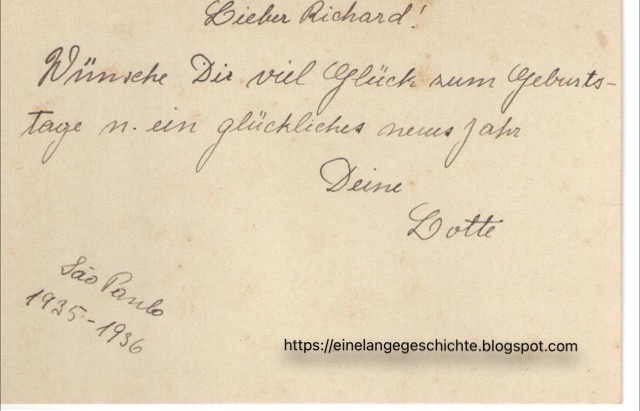 Lieber Richard!
Wünsche Dir viel Glück zum Geburts-
tage n. ein glückliches neues Jahr
Deine
Lotte
São Paulo
1935-1936
https://einelangegeschichte.blogspot.com